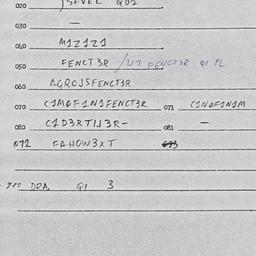 020 JSFVEL QD1
030 —
040 M1Z1Z1
050 FENCT3R / U7 FENCT3R Q1 PL
060 AGROJSFENCT3R
070 C1M0F1N1FENCT3R 071 C1N0F1N1M
080 C1D3RT1J3R- 081 —
072 FAHOW3XT 073
DRA. Q1 3